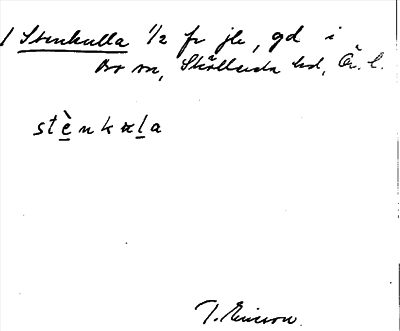 / Stenkulla 1/2 fr jle, gd i
Bro sn, Skölleida hd, Äv. l.
stènkɷla
T. Ericson